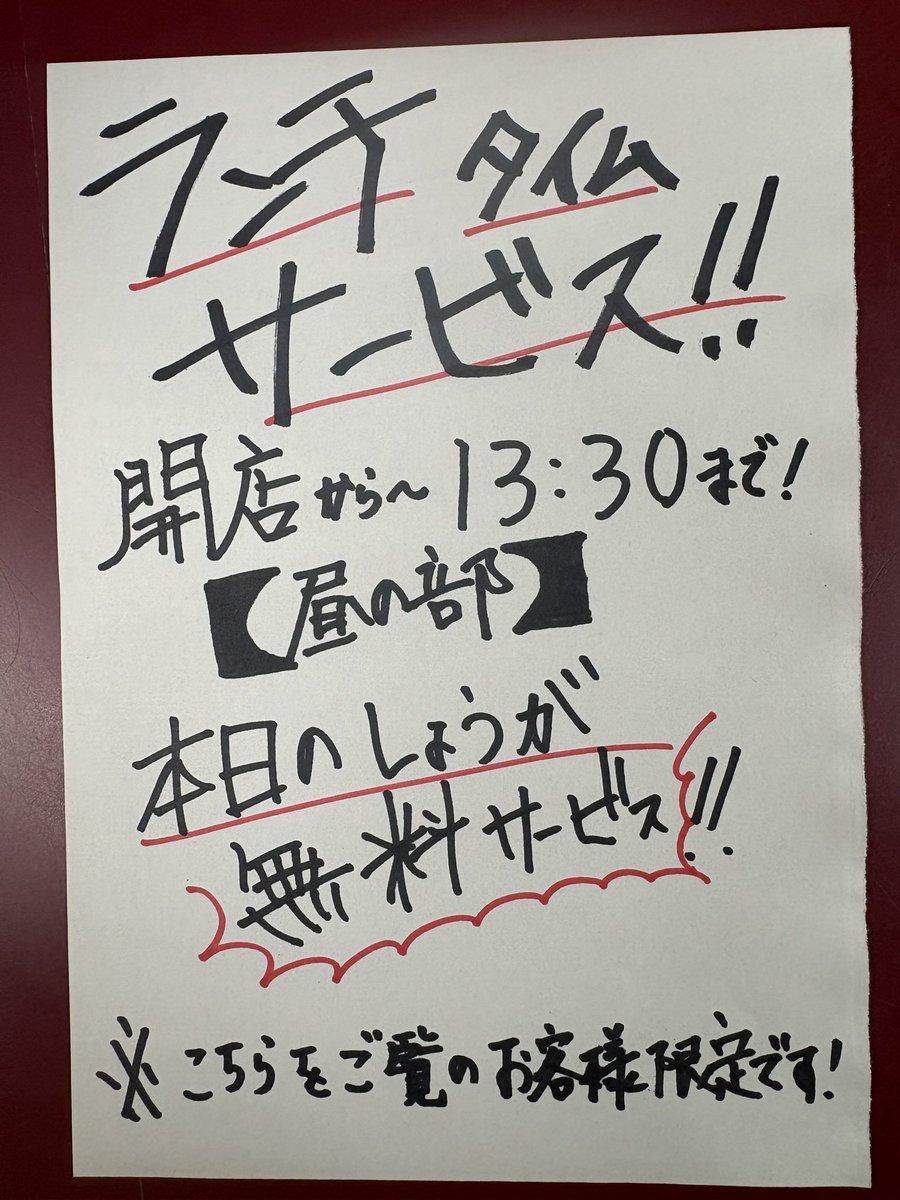 ランチタイム
サービス!!
開店から〜13:30まで!
【昼の部】
本日のしょうが
無料サービス!!
※こちらをご覧のお客様限定です!